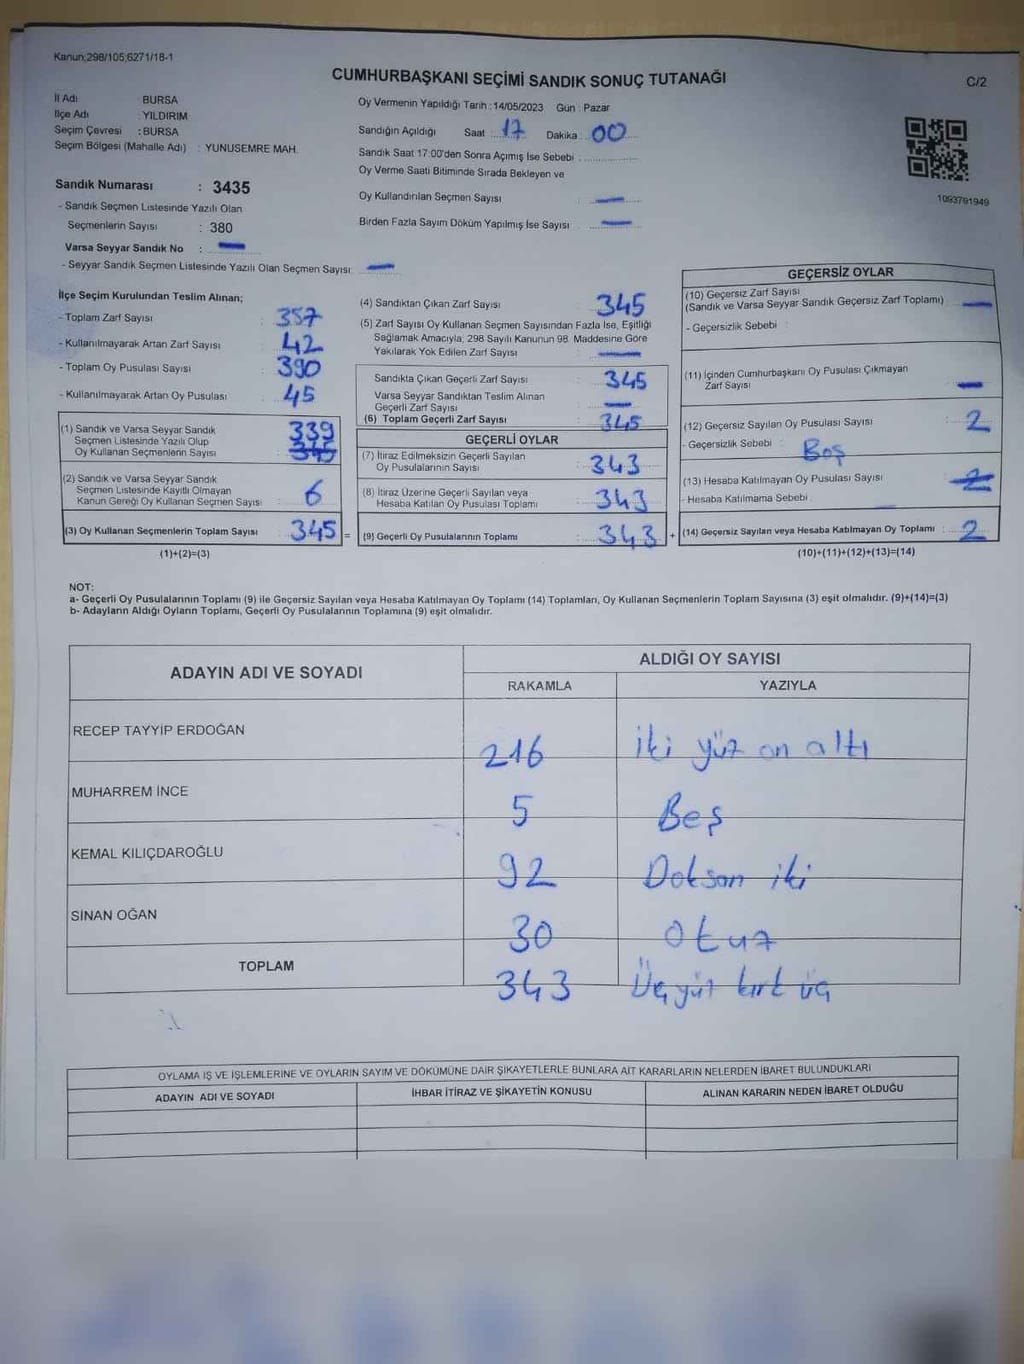 Kanun;298/105;6271/18-1
CUMHURBAŞKANI SEÇİMİ SANDIK SONUÇ TUTANAĞI
C/2
İl Adı : BURSA
İlçe Adı : YILDIRIM
Seçim Çevresi : BURSA
Seçim Bölgesi (Mahalle Adı) : YUNUSEMRE MAH.
Sandık Numarası : 3435
- Sandık Seçmen Listesinde Yazılı Olan
Seçmenlerin Sayısı : 380
Varsa Seyyar Sandık No : —
- Seyyar Sandık Seçmen Listesinde Yazılı Olan Seçmen Sayısı : —
Oy Vermenin Yapıldığı Tarih : 14/05/2023 Gün : Pazar
Sandığın Açıldığı Saat : 17 Dakika : 00
Sandık Saat 17:00'den Sonra Açımış İse Sebebi :
Oy Verme Saati Bitiminde Sırada Bekleyen ve
Oy Kullandırılan Seçmen Sayısı : —
Birden Fazla Sayım Döküm Yapılmış İse Sayısı : —
1093791949
İlçe Seçim Kurulundan Teslim Alınan;
- Toplam Zarf Sayısı : 357
- Kullanılmayarak Artan Zarf Sayısı : 42
- Toplam Oy Pusulası Sayısı : 390
- Kullanılmayarak Artan Oy Pusulası : 45
(1) Sandık ve Varsa Seyyar Sandık
Seçmen Listesinde Yazılı Olup
Oy Kullanan Seçmenlerin Sayısı : 339
345
(2) Sandık ve Varsa Seyyar Sandık
Seçmen Listesinde Kayıtlı Olmayan
Kanun Gereği Oy Kullanan Seçmen Sayısı : 6
(3) Oy Kullanan Seçmenlerin Toplam Sayısı : 345 =
(1)+(2)=(3)
(4) Sandıktan Çıkan Zarf Sayısı : 345
(5) Zarf Sayısı Oy Kullanan Seçmen Sayısından Fazla İse, Eşitliği
Sağlamak Amacıyla; 298 Sayılı Kanunun 98. Maddesine Göre
Yakılarak Yok Edilen Zarf Sayısı : —
Sandıkta Çıkan Geçerli Zarf Sayısı : 345
Varsa Seyyar Sandıktan Teslim Alınan
Geçerli Zarf Sayısı : —
(6) Toplam Geçerli Zarf Sayısı : 345
GEÇERLİ OYLAR
(7) İtiraz Edilmeksizin Geçerli Sayılan
Oy Pusulalarının Sayısı : 343
(8) İtiraz Üzerine Geçerli Sayılan veya
Hesaba Katılan Oy Pusulası Toplamı : 343
(9) Geçerli Oy Pusulalarının Toplamı : 343 +
GEÇERSİZ OYLAR
(10) Geçersiz Zarf Sayısı
(Sandık ve Varsa Seyyar Sandık Geçersiz Zarf Toplamı) : —
- Geçersizlik Sebebi :
(11) İçinden Cumhurbaşkanı Oy Pusulası Çıkmayan
Zarf Sayısı : —
(12) Geçersiz Sayılan Oy Pusulası Sayısı : 2
- Geçersizlik Sebebi : Boş
(13) Hesaba Katılmayan Oy Pusulası Sayısı : 2
- Hesaba Katılmama Sebebi :
(14) Geçersiz Sayılan veya Hesaba Katılmayan Oy Toplamı : 2
(10)+(11)+(12)+(13)=(14)
NOT:
a- Geçerli Oy Pusulalarının Toplamı (9) ile Geçersiz Sayılan veya Hesaba Katılmayan Oy Toplamı (14) Toplamları, Oy Kullanan Seçmenlerin Toplam Sayısına (3) eşit olmalıdır. (9)+(14)=(3)
b- Adayların Aldığı Oyların Toplamı, Geçerli Oy Pusulalarının Toplamına (9) eşit olmalıdır.
ADAYIN ADI VE SOYADI
ALDIĞI OY SAYISI
RAKAMLA YAZIYLA
RECEP TAYYİP ERDOĞAN 216 iki yüz on altı
MUHARREM İNCE 5 Beş
KEMAL KILIÇDAROĞLU 92 Doksan iki
SİNAN OĞAN 30 Otuz
TOPLAM 343 Üç yüz kırk üç
OYLAMA İŞ VE İŞLEMLERİNE VE OYLARIN SAYIM VE DÖKÜMÜNE DAİR ŞİKAYETLERLE BUNLARA AİT KARARLARIN NELERDEN İBARET BULUNDUKLARI
ADAYIN ADI VE SOYADI İHBAR İTİRAZ VE ŞİKAYETİN KONUSU ALINAN KARARIN NEDEN İBARET OLDUĞU